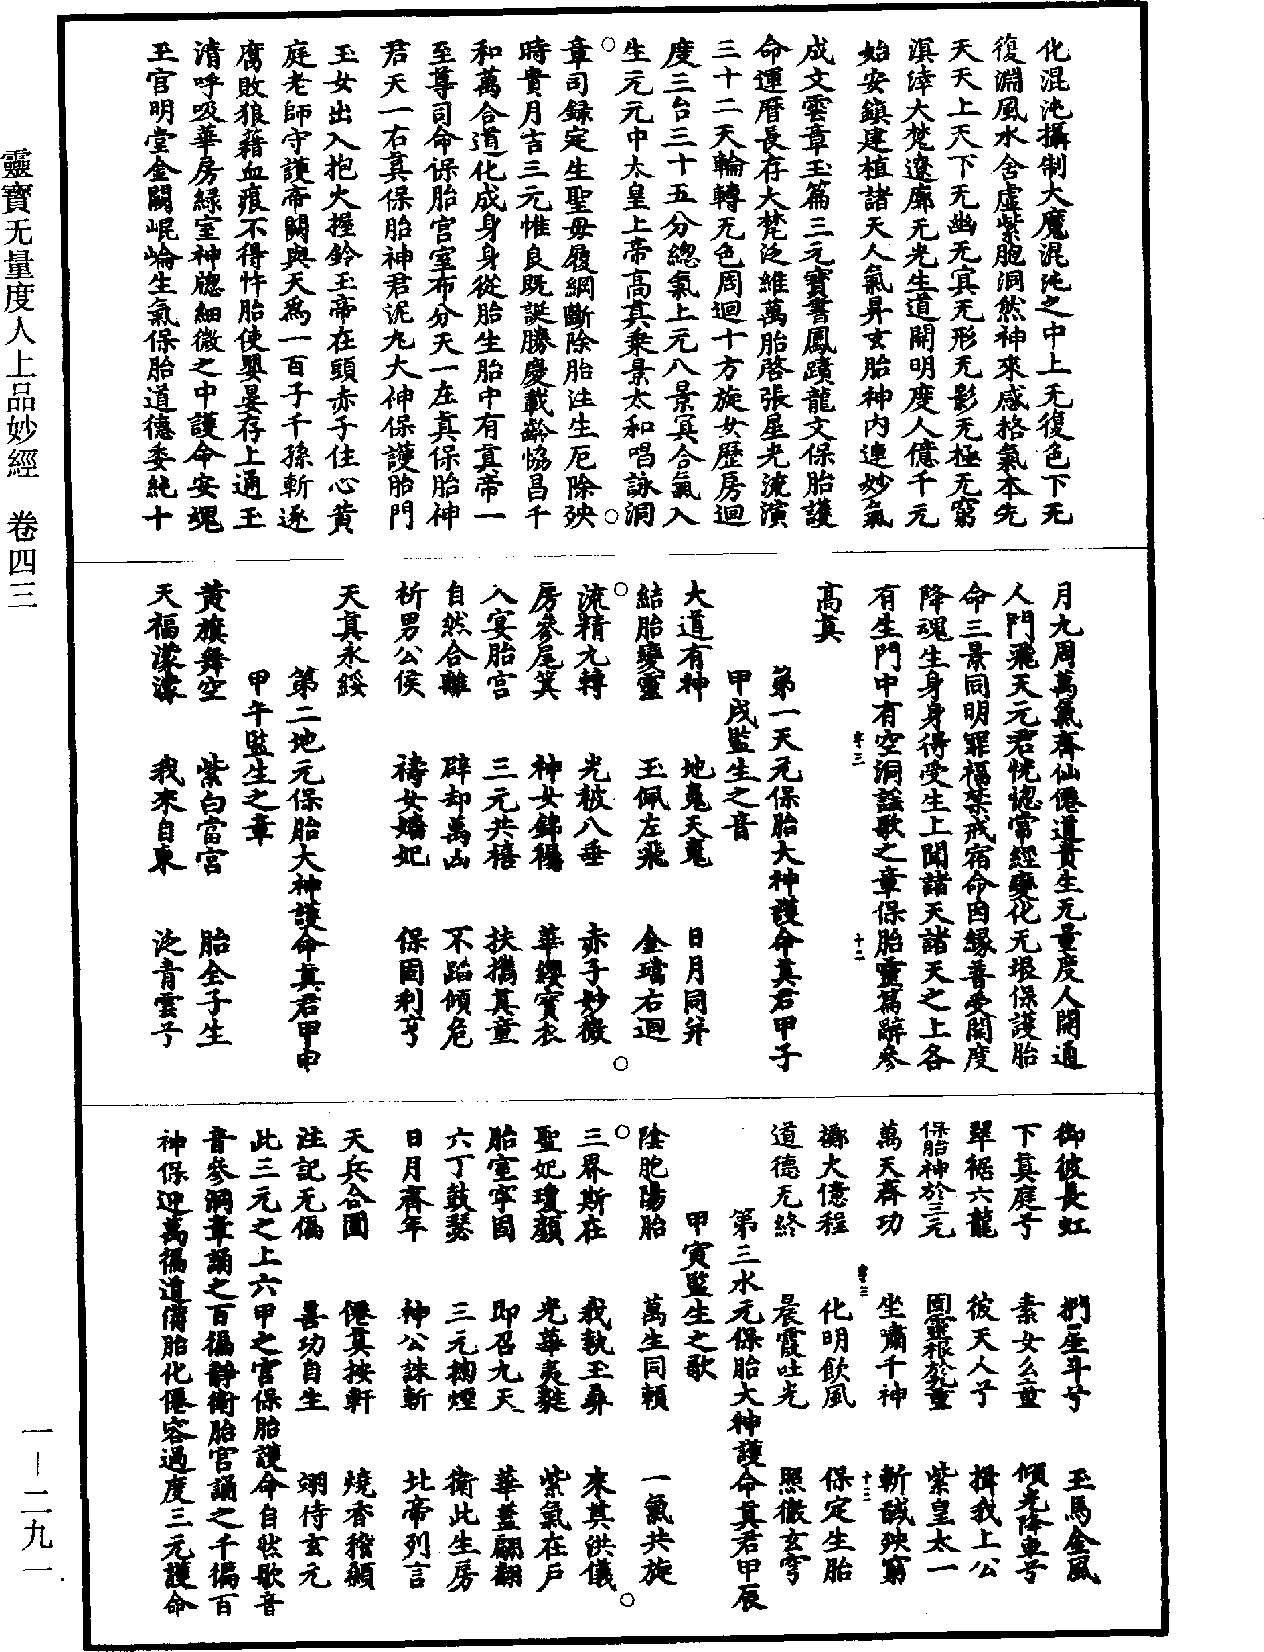 化混沌攝制大魔混沌之中上无復色下无
復淵風水舍虛紫胞洞然神來感格氣本先
天天上天下无幽无冥无形无影无極无窮
溟涬大梵遼廓无光生道開明度人億千元
始安鎮建植諸天人氣昇玄胎神內連妙氣
成文雲章玉篇三元寶書鳳蹟龍文保胎護
命運曆長存大梵泛維萬胎啓張星光流演
三十二天輪轉无色周迴十方旋女歷房迴
度三台三十五分總氣上元八景冥合氣入
生元元中太皇上帝高真乘景太和唱詠洞
章司録定生聖母履綱斷除胎注生厄除殃
時貴月吉三元惟良既誕勝慶載齡協昌千
和萬合道化成身身從胎生胎中有真帝一
至尊司命保胎官室布分天一左真保胎神
君天一右真保胎神君泥丸大神保護胎門
玉女出入抱火握鈴玉帝在頭赤子住心黃
庭老師守護帝闕與天爲一百子千孫斬逐
腐敗狼藉血痕不得忤胎使嬰晏存上通玉
清呼吸華房緑室神牕細微之中護命安魂
玉官明堂金闕崐崘生氣保胎道德委純十
月九周萬氣齊仙僊道貴生无量度人開通
人門飛天元君恍惚常經變化无垠保護胎
命三景同明罪福禁戒宿命因緣普受開度
降魂生身身得受生上聞諸天諸天之上各
有生門中有空洞謡歌之章保胎靈篇辭參
高真
第一天元保胎大神護命真君甲子
甲戌監生之音
大道有神 地鬼天鬼 日月同并
結胎變靈 玉佩左飛 金璫右迴
流精九轉 光被八垂 赤子妙微
房參尾箕 神女錦裼 華纓寶衣
入宴胎宫 三元共禧 扶攜真童
自然合離 辟却萬凶 不蹈傾危
祈男公侯 禱女嬙妃 保固利亨
天真永綏
第二地元保胎大神護命真君甲申
甲午監生之章
黃旗舞空 紫白當宫 胎全子生
天福濛濛 我來自東 泛青雲兮
御彼長虹 捫星斗兮 玉馬金風
下真庭兮 素女幺童 傾光降車兮
翠裾六龍 彼天人兮 揖我上公
保胎神於三元 固靈根於乾童 紫皇太一
萬天齊功 坐嘯千神 斬馘殃窮
擲大億程 化明飲風 保定生胎
道德无終 晨霞吐光 照徹玄穹
第三水元保胎大神護命真君甲辰
甲寅監生之歌
陰胞陽胎 萬生同賴 一氣共旋
三界斯在 我執玉彝 來其洪儀
聖妃瓊顏 光華夷㲩 紫氣在戶
胎室宇固 即召九天 華蓋翩翻
六丁鼓瑟 三元搊煙 衛此生房
日月齊年 神公誅斬 北帝列言
天兵合圍 僊真按軒 燒香稽顙
注記无僞 善功自生 翊侍玄元
此三元之上六甲之官保胎護命自然歌音
音參洞章誦之百徧靜衛胎宫誦之千徧百
神保迎萬徧道備胎化僊容過度三元護命
靈寶无量度人上品妙經 卷四三
一－二九一